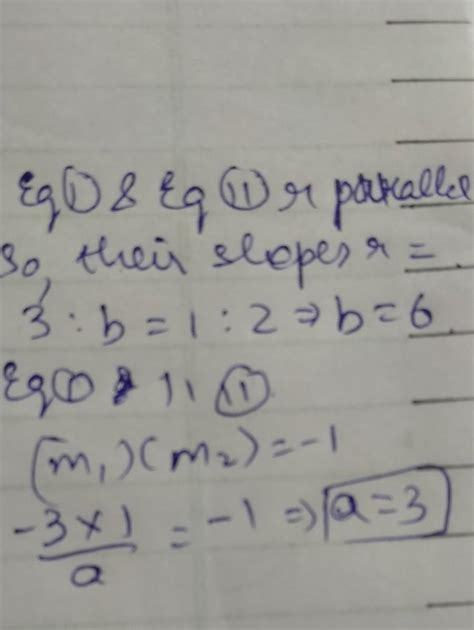 Eq (i) & Eq (ii) r parallel
So, their slopes r =
3 : b = 1 : 2 ⇒ b = 6
Eq (i) (ii)
(m₁)(m₂) = -1
-3 × 1 / a = -1 ⇒ a = 3